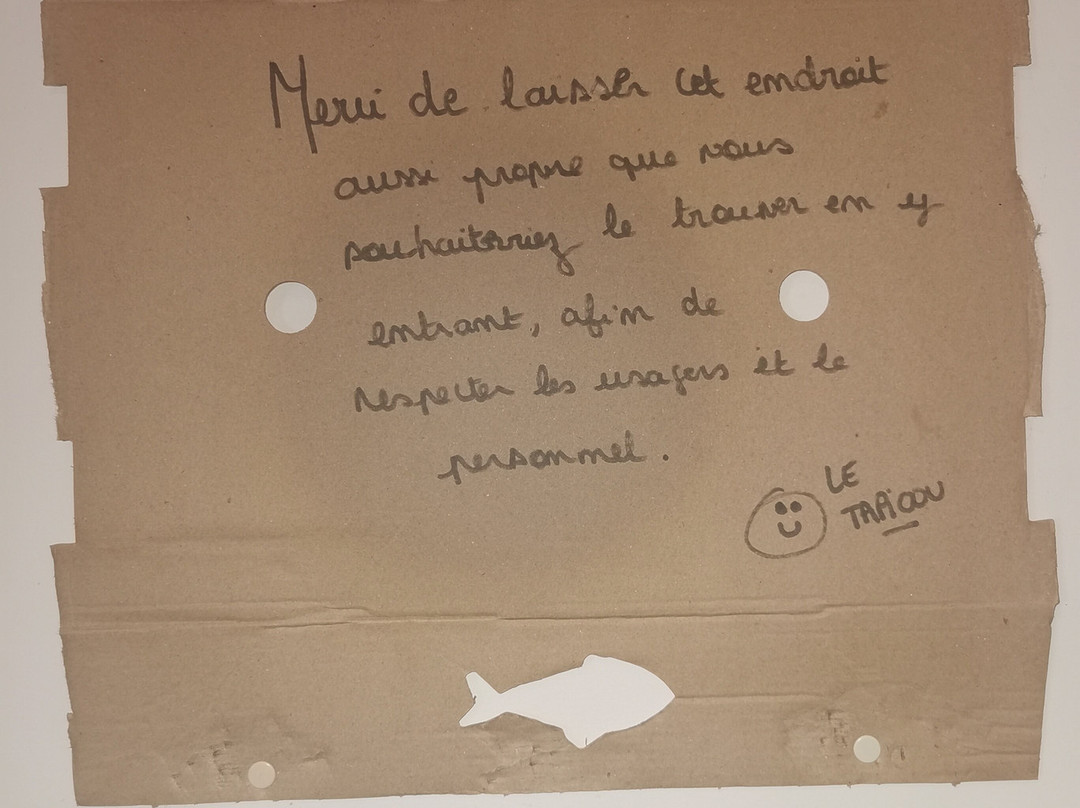 Merci de laisser cet endroit
aussi propre que vous
souhaiteriez le trouver en y
entrant, afin de
respecter les usagers et le
personnel.
LE
TAPiOOU